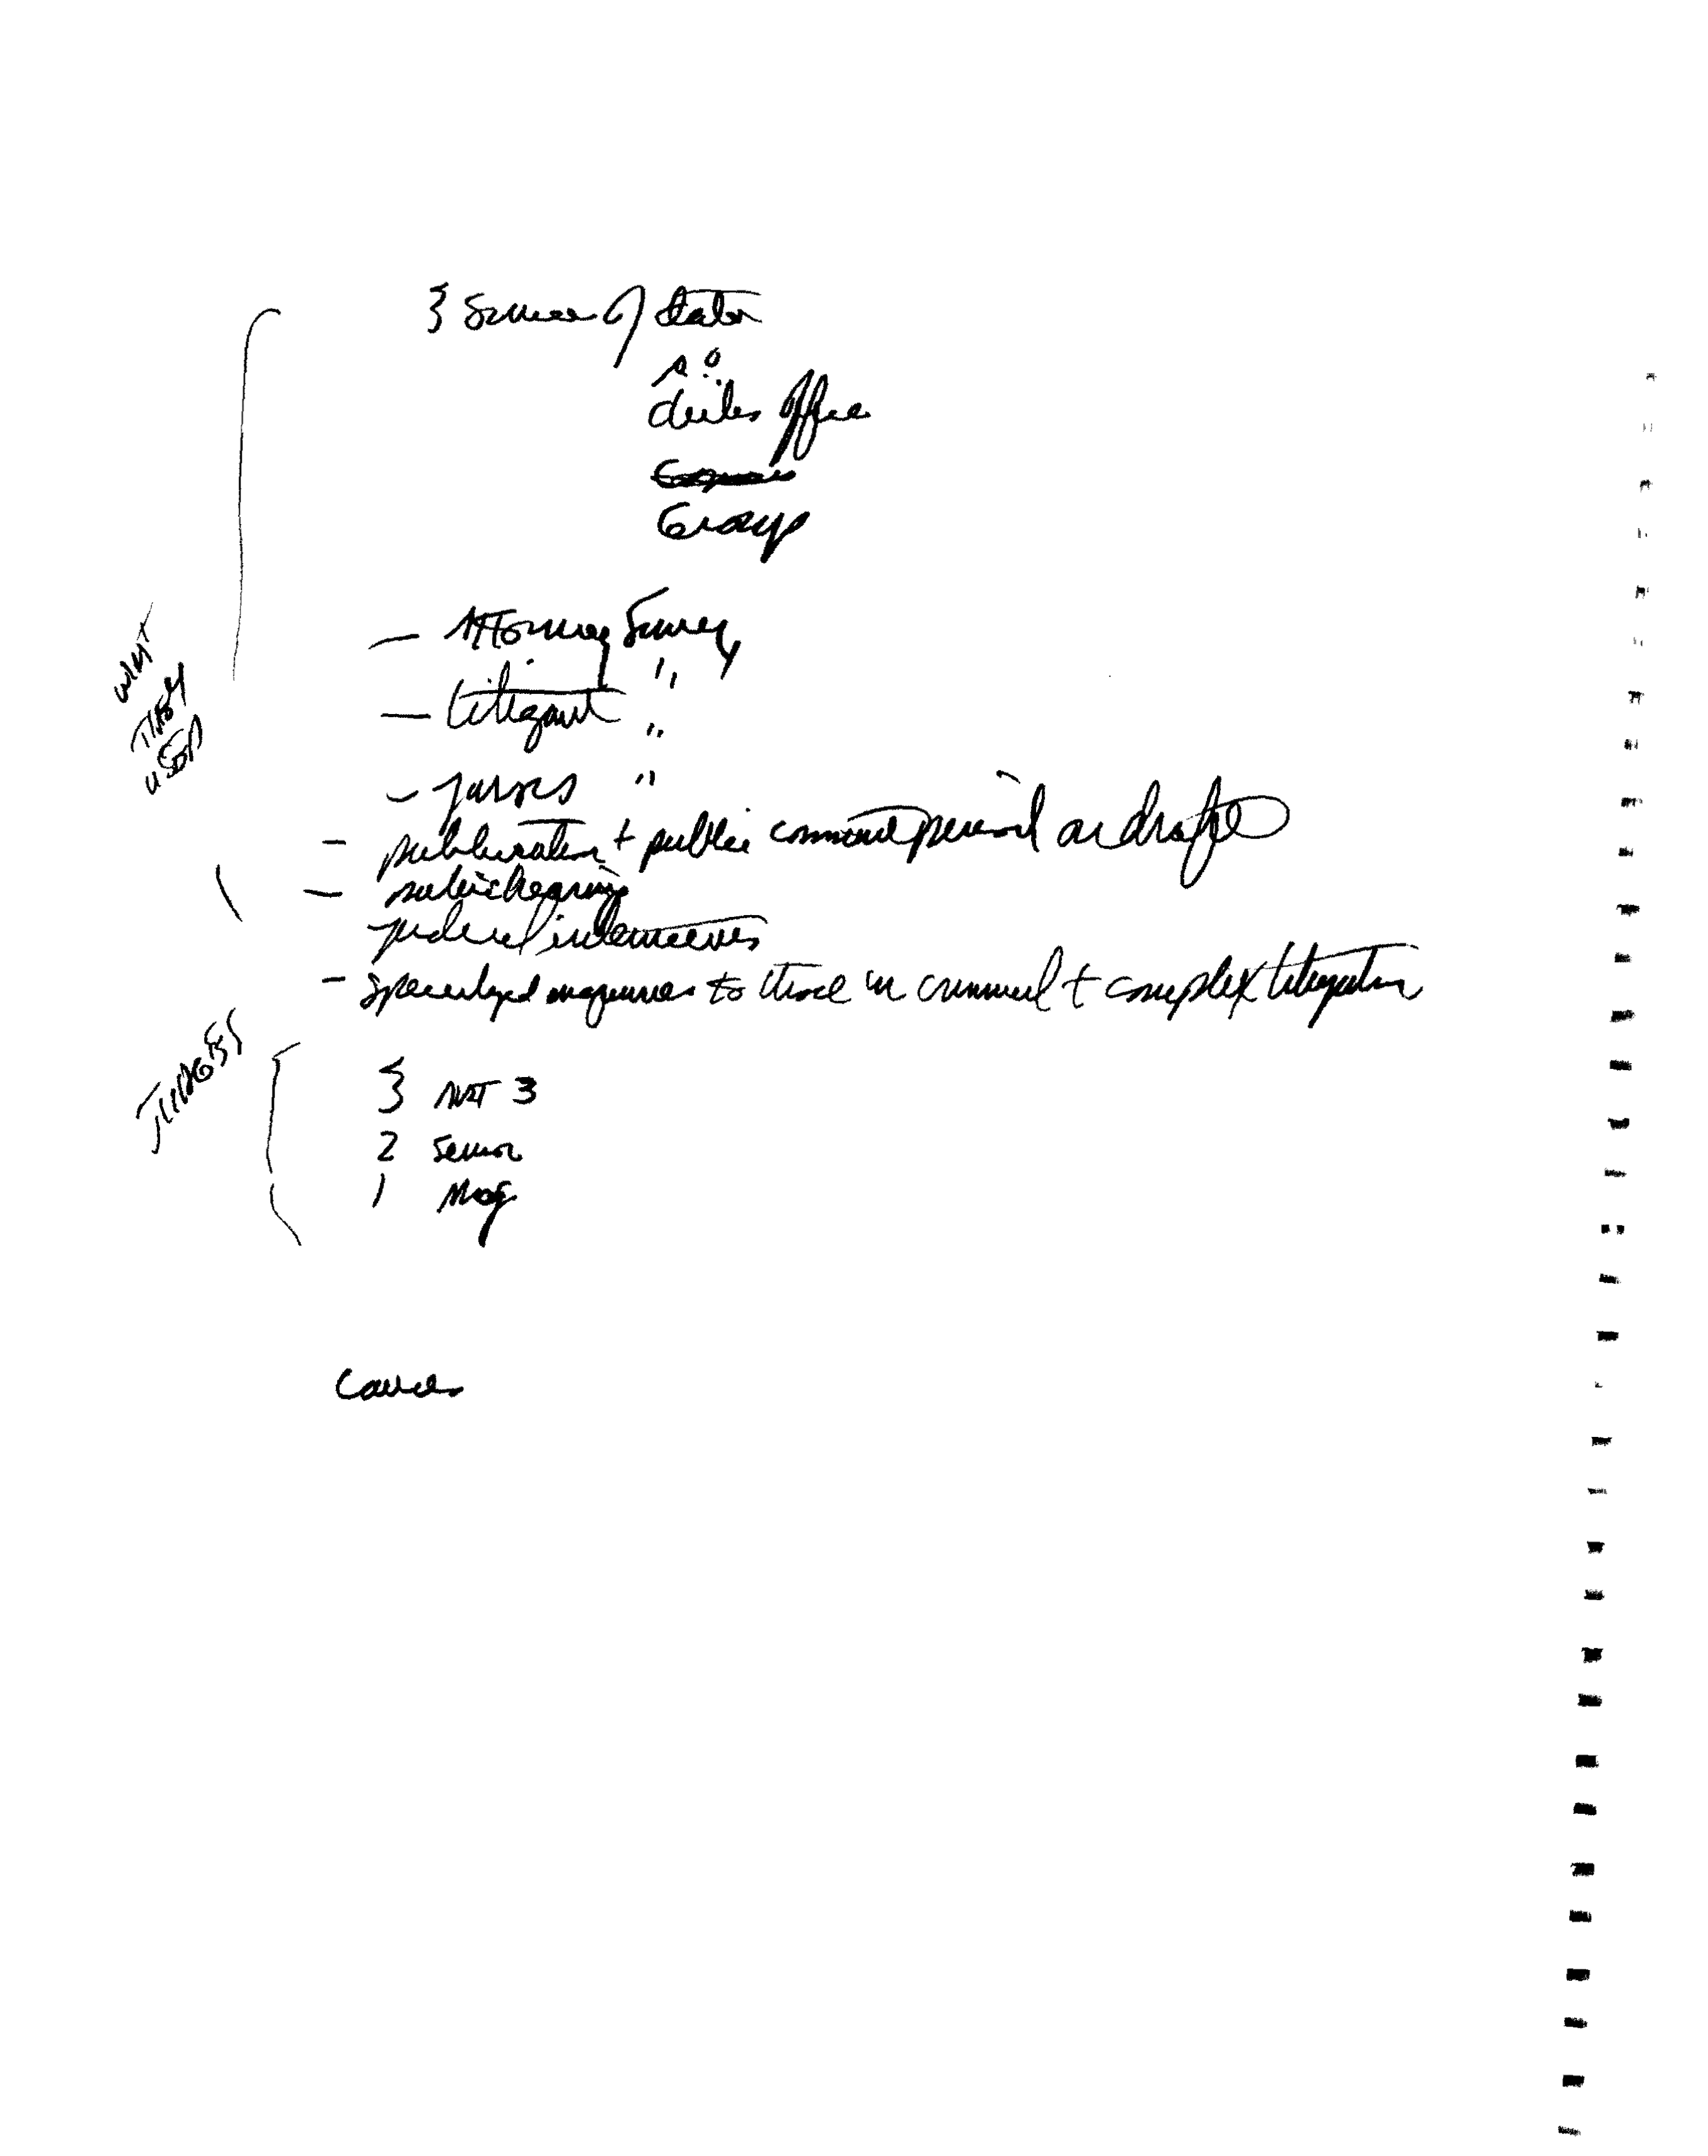 } Source of Stats
A.O.
clerks office
Group
WHAT
THEY
USED
— Attorney Survey
— Litigant "
— jurors "
— publication + public comment period on draft
— public hearing
judicial interviews
— specialized inquiries to those in criminal + complex litigation
JUDGES
} ART 3
2 Senior
1 Mag